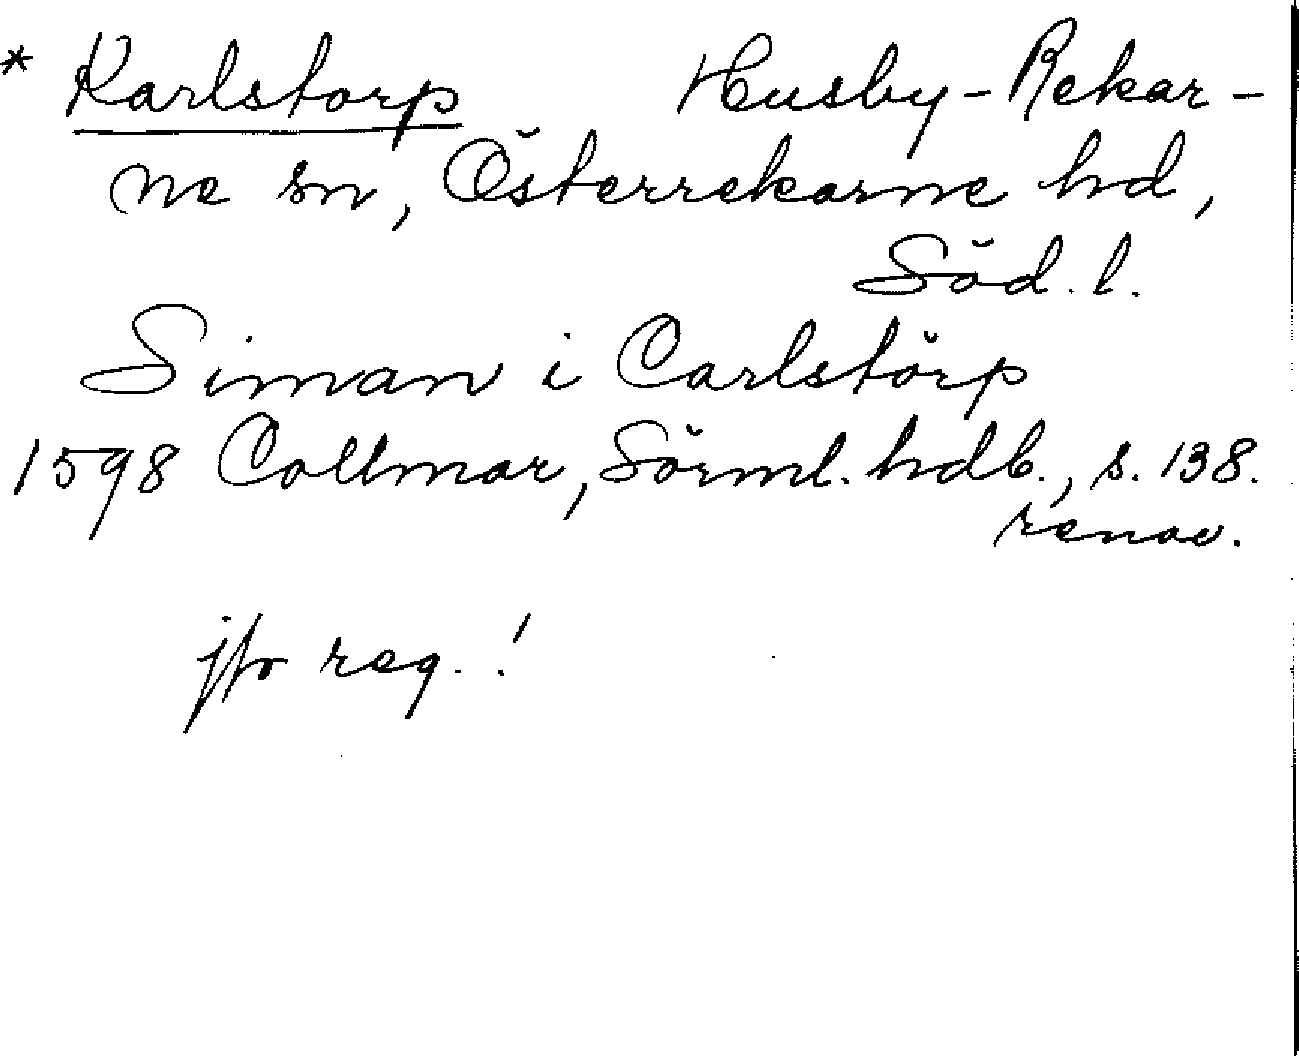 * Karlstorp Husby-Rekar-
ne sn, Österrekarne hd,
Söd. l.
Siman i Carlstörp
1598 Collmar, Sörml. hdb., s. 138.
renov.
jfr reg. !